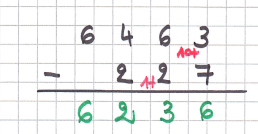 6 4 6 10+ 3
- 2 1+ 2 7
6 2 3 6